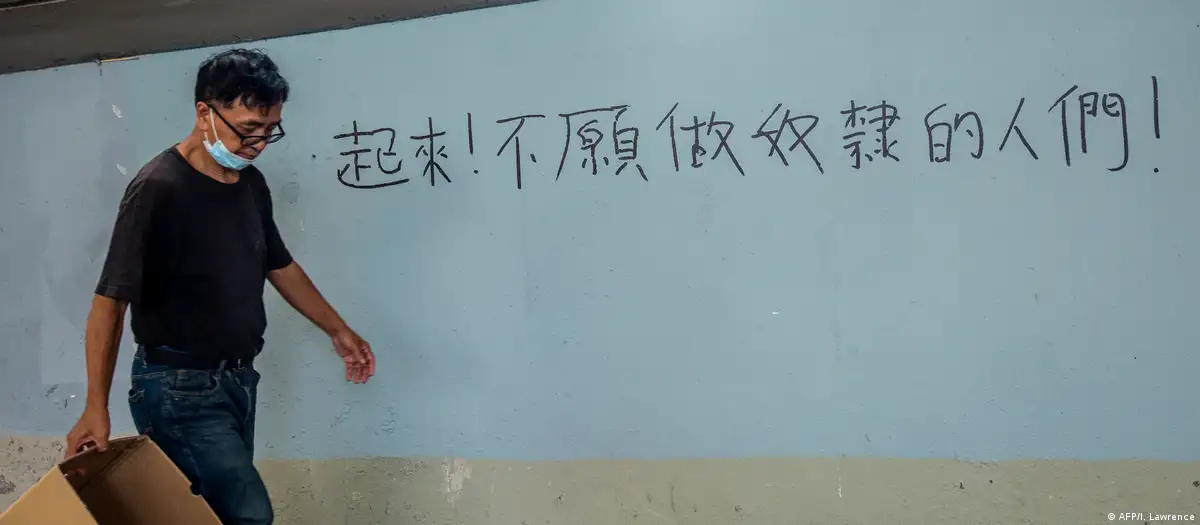 起來!不願做奴隸的人們!
© AFP/I. Lawrence